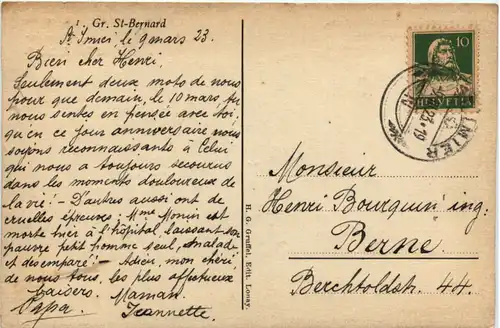 Gr. St-Bernard
St Imier, le 9 mars 23.
Bien cher Henri,
Seulement deux mots de nous
pour que demain, le 10 mars, tu
nous sentes en pensée avec toi,
qu'en ce jour anniversaire nous
soyons reconnaissants à Celui
qui nous a toujours secourus
dans les moments douloureux de
la vie! – D'autres aussi ont de
cruelles épreuves, Mme Monin est
morte hier à l'hôpital, laissant son
pauvre petit homme seul, malade
et désemparé! – Adieu, mon chéri
de nous tous, les plus affectueux
baisers. Maman.
Papa. Jeannette.
H. G. Gruffel, Edit. Lonay.
10
HELVETIA
IMIER
23. 19
Monsieur
Henri Bourquin ing.
Berne
Berchtoldstr. 44.